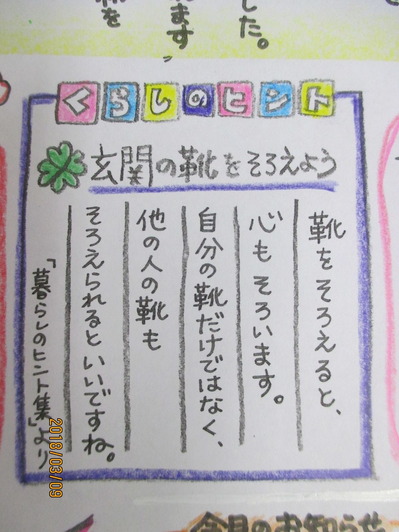 した。
ます
を
くらしのヒント
玄関の靴をそろえよう
靴をそろえると、
心もそろいます。
自分の靴だけではなく、
他の人の靴も
そろえられるといいですね。
「暮らしのヒント集」より
2018/03/09
今月のお知らせ